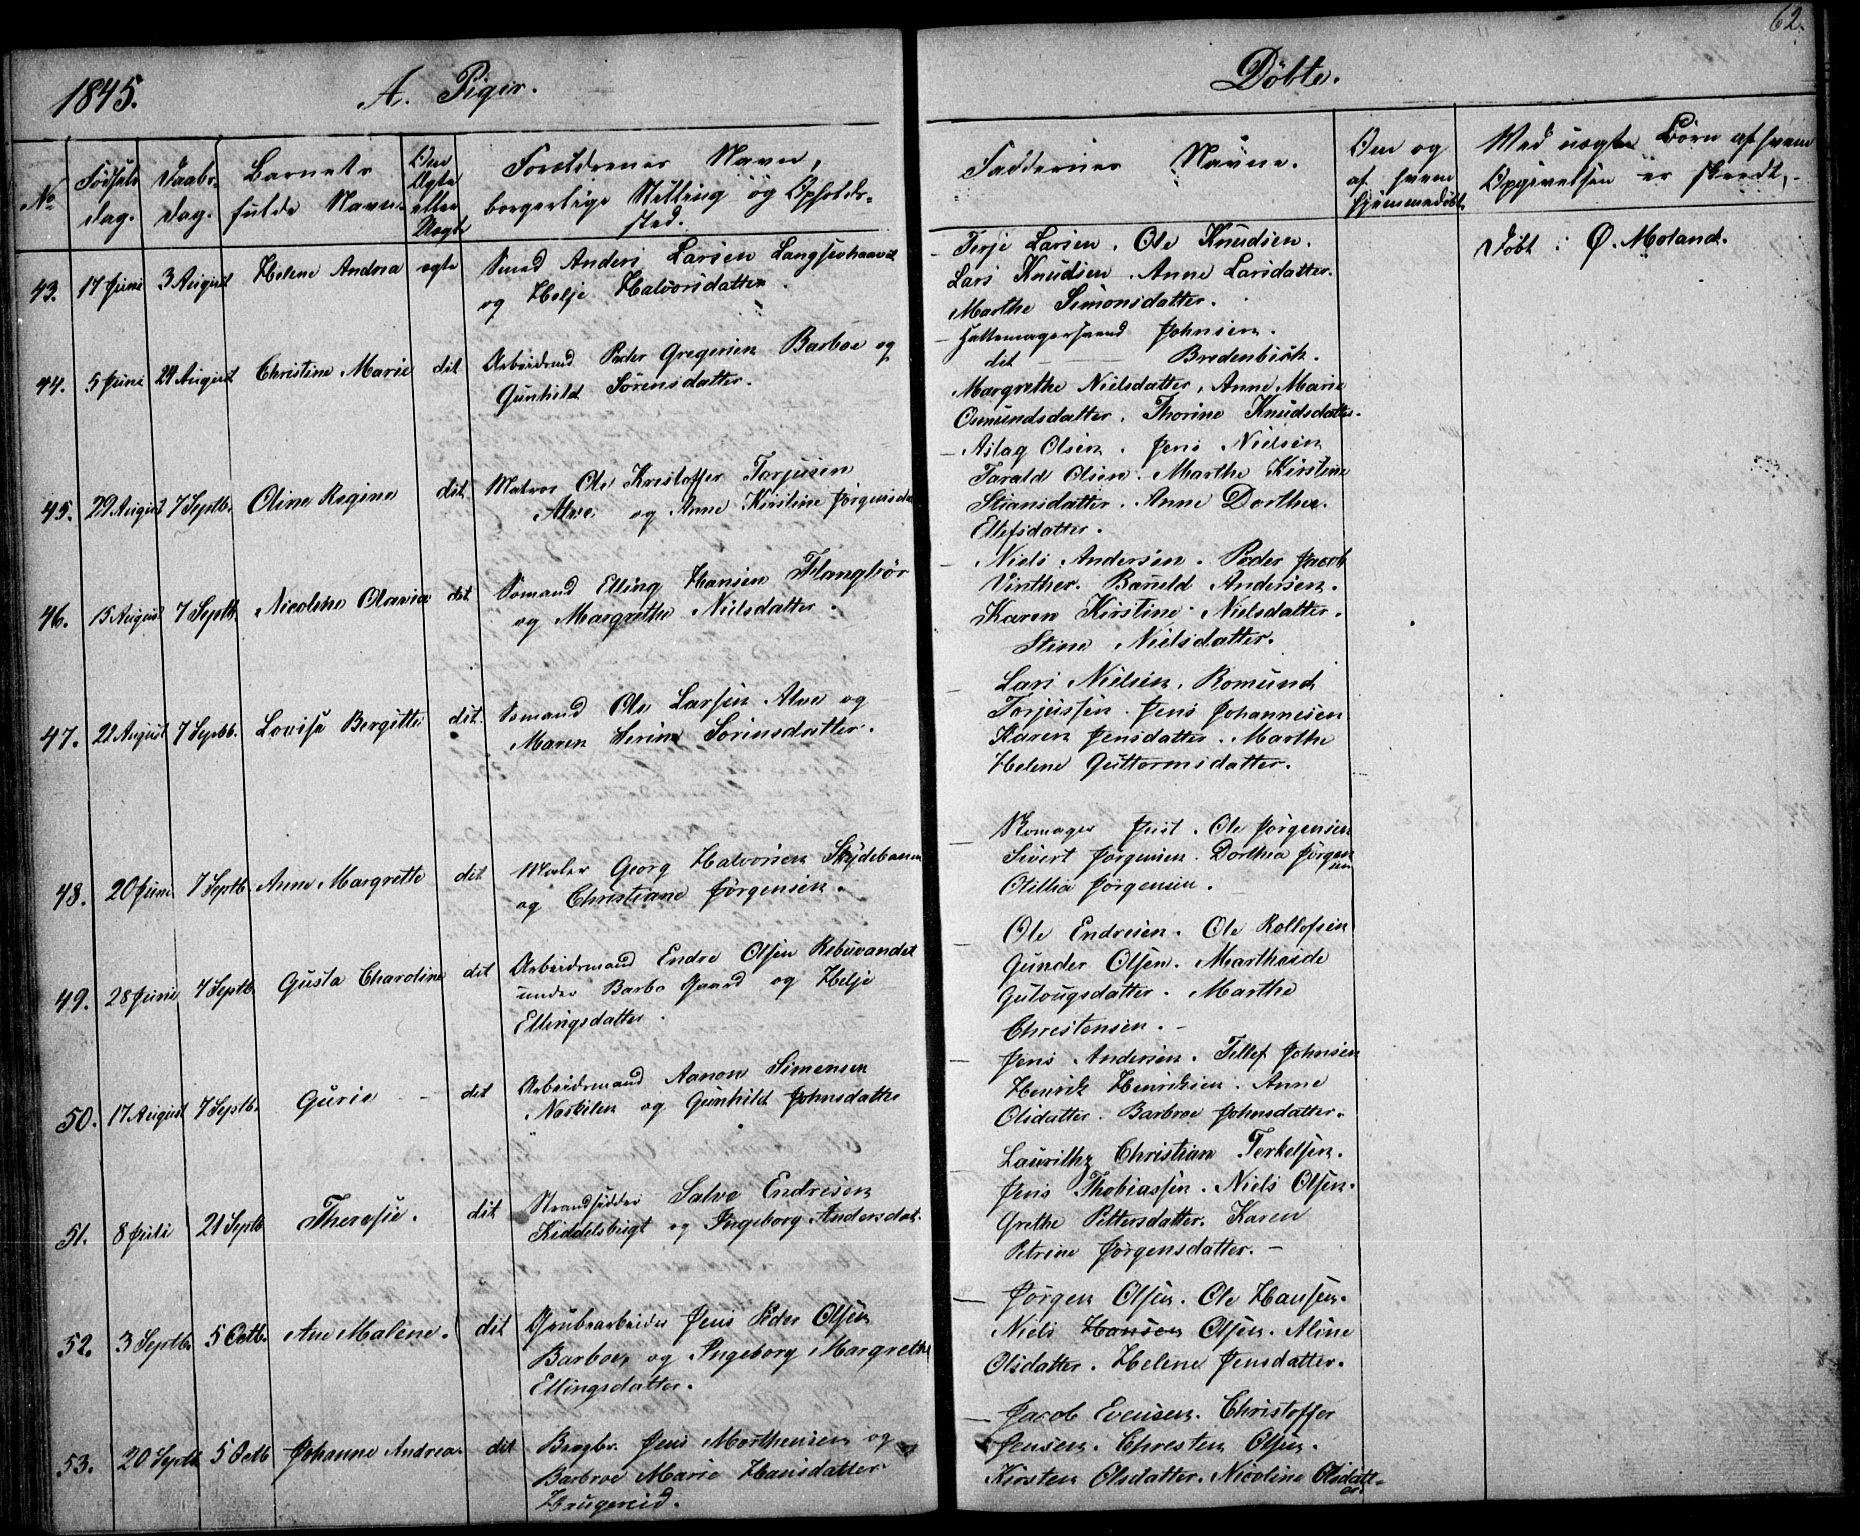 62.
1845. A. Piger. Døbte.
No
Fødsels dag.
Daabs- dag.
Barnets fulde Navn.
Om Ægte eller Uægte
Forældrenes Navn, borgerlige Stilling og Opholds- sted.
Faddernes Navne.
Om og af hvem hjemmedøbt
Ved uægte Børn af hvem
Opgivelsen er skeedt.
43. 17 Juni 3 August Helene Andrea ægte Smed Anders Larsen
og Helje Halvorsdatter.
Terje Larsen. Ole Knudsen.
Lars Knudsen. Anne Larsdatter.
Marthe Simonsdatter.
Døbt i Ø. Moland.
44. 5 Juni 24 August Christine Marie dit Arbeidsmd Peder Gregersen Barboe og
Gunhild Sørensdatter.
Hattemagersvend Johnsen.
dit Bredenbeck.
Margrethe Nielsdatter, Anne Marie
Osmundsdatter. Thorine Knudsdatter.
45. 29 August 7 Septb. Oline Regine dit Matros Ole Kristoffer Torjusen
Alve og Anne Kirstine Jørgensd
Aslag Olsen. Jens Nielsen
Tarald Olsen. Marthe Kirstine
Stiansdatter. Anne Dorthea.
Ellefsdatter.
46. 15 August 7 Septb. Nicoline Olavia dit Sømand Elling Hansen
og Margrethe Nielsdatter.
Niels Andersen. Peder Jacob
Vinther. Andersen.
Karen Kirstine Nielsdatter.
Stine Nielsdatter.
47. 21 August 7 Septb. Lovise Bergitte dit. Sømand Ole Larsen Alve og
Maren Serine Sørensdatter.
Lars Nielsen. Romund
Torjussen. Jens Johannesen
Karen Jensdatter. Marthe
Helene Guttormsdatter.
48. 20 Juni 7 Septb. Anne Margrethe dit Maler Georg Halvorsen Skydebanen
og Christiane Jørgensen.
Skomager Just. Ole Jørgensen
Sivert Jørgensen. Dorthea Jørgen
sen
Otillia Jørgensen.
49. 28 Juni 7 Septb. Gusta Charoline dit Arbeidsmand Endre Olsen
under Barbo Gaard og Helje
Ellingsdatter.
Ole Endresen. Ole Rollofsen
Gunder Olsen. Marthe
Gulougsdatter. Marthe
Christensen. -
50. 17 August 7 Septb. Gurie - dit Arbeidsmand Aanon Simensen
Næskilen og Gunhild Johnsdatter
Jens Andersen. Tellef Johnsen
Henrik Henriksen. Anne
Olsdatter. Barbroe Johnsdatter.
51. 8 Juli 21 Septb Theresie. dit Strandsidder Salve Endresen
Kiddelsbugt og Ingeborg Andersdat.
Laurithz Christian Terkelsen.
Jens Thobiassen. Niels Olsen.
Grethe Pettersdatter. Karen
Petrine Jørgensdatter. -
52. 3 Septb. 5 Octb. Ane Malene. dit Grubearbeider Jens Peder Olsen
Barboe, og Ingeborg Margrethe
Ellingsdatter.
Jørgen Olsen. Ole Hansen.
Niels Hansen Olsen. Aline
Olsdatter. Helene Jensdatter.
53. 20 Septb 5 Octb Johanne Andrea. dit Bergbr. Jens Morthensen og
Barbroe Marie Hansdatter
Jacob Evensen. Christoffer
Jensen. Chresten Olsen.
Kirsten Olsdatter. Nicoline Olsdatt-
er.